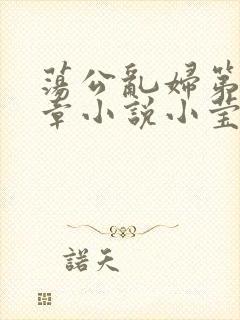 蕩公亂婦第
章小説小莹
諾天